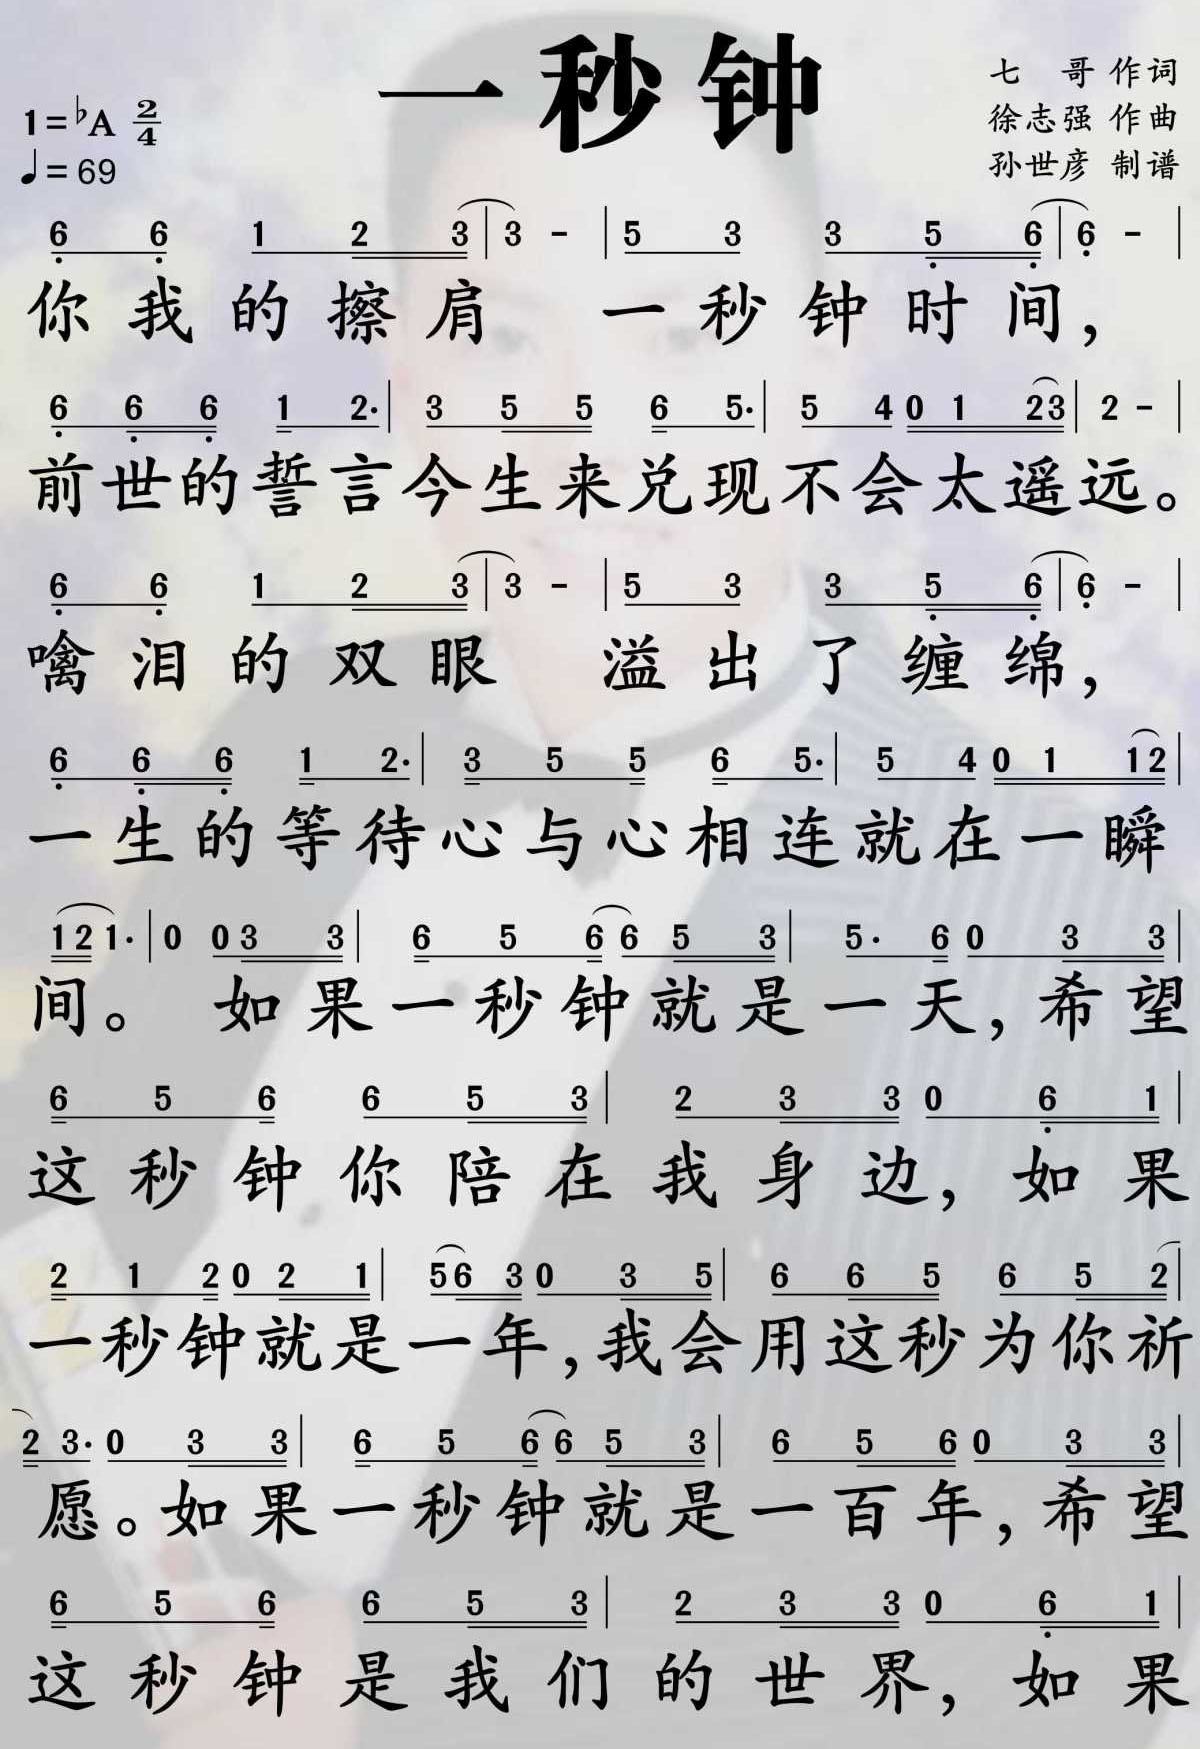 一秒钟
七 哥 作词
徐志强 作曲
孙世彦 制谱
1=♭A 2/4
♩=69
6 6 1 2 3 | 3 - | 5 3 3 5 6 | 6 - |
你我的擦肩 一秒钟时间,
6 6 6 1 2. | 3 5 5 6 5. | 5 4 0 1 23 | 2 - |
前世的誓言今生来兑现不会太遥远。
6 6 1 2 3 | 3 - | 5 3 3 5 6 | 6 - |
噙泪的双眼 溢出了缠绵,
6 6 6 1 2. | 3 5 5 6 5. | 5 4 0 1 12 |
一生的等待心与心相连就在一瞬
121. | 0 03 3 | 6 5 66 5 3 | 5. 60 3 3 |
间。 如果一秒钟就是一天,希望
6 5 6 6 5 3 | 2 3 3 0 6 1 |
这秒钟你陪在我身边,如果
2 1 20 2 1 | 56 30 3 5 | 6 6 5 6 5 2 |
一秒钟就是一年,我会用这秒为你祈
2 3. 0 3 3 | 6 5 66 5 3 | 6 5 60 3 3 |
愿。如果一秒钟就是一百年,希望
6 5 6 6 5 3 | 2 3 3 0 6 1 |
这秒钟是我们的世界,如果